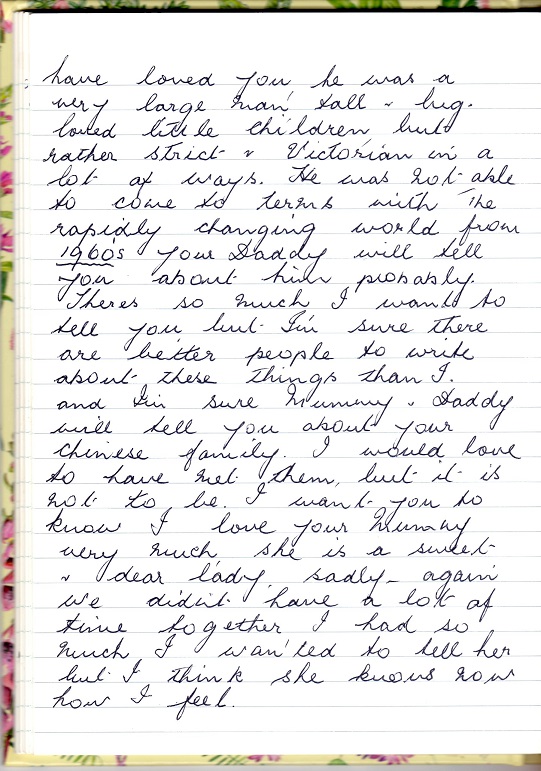 have loved you he was a
very large man, tall & big.
loved little children, but
rather strict & Victorian in a
lot of ways. He was not able
to come to terms with the
rapidly changing world from
1960s your Daddy will tell
you about him probably.
Theres so much I want to
tell you but I'm sure there
are better people to write
about these things than I.
and I'm sure Mummy & Daddy
will tell you about your
Chinese family. I would love
to have met them, but it is
not to be. I want you to
know I love your Mummy
very much, she is a sweet
& dear lady, sadly - again
we didn't have a lot of
time together I had so
much I wanted to tell her
but I think she knows now
how I feel.